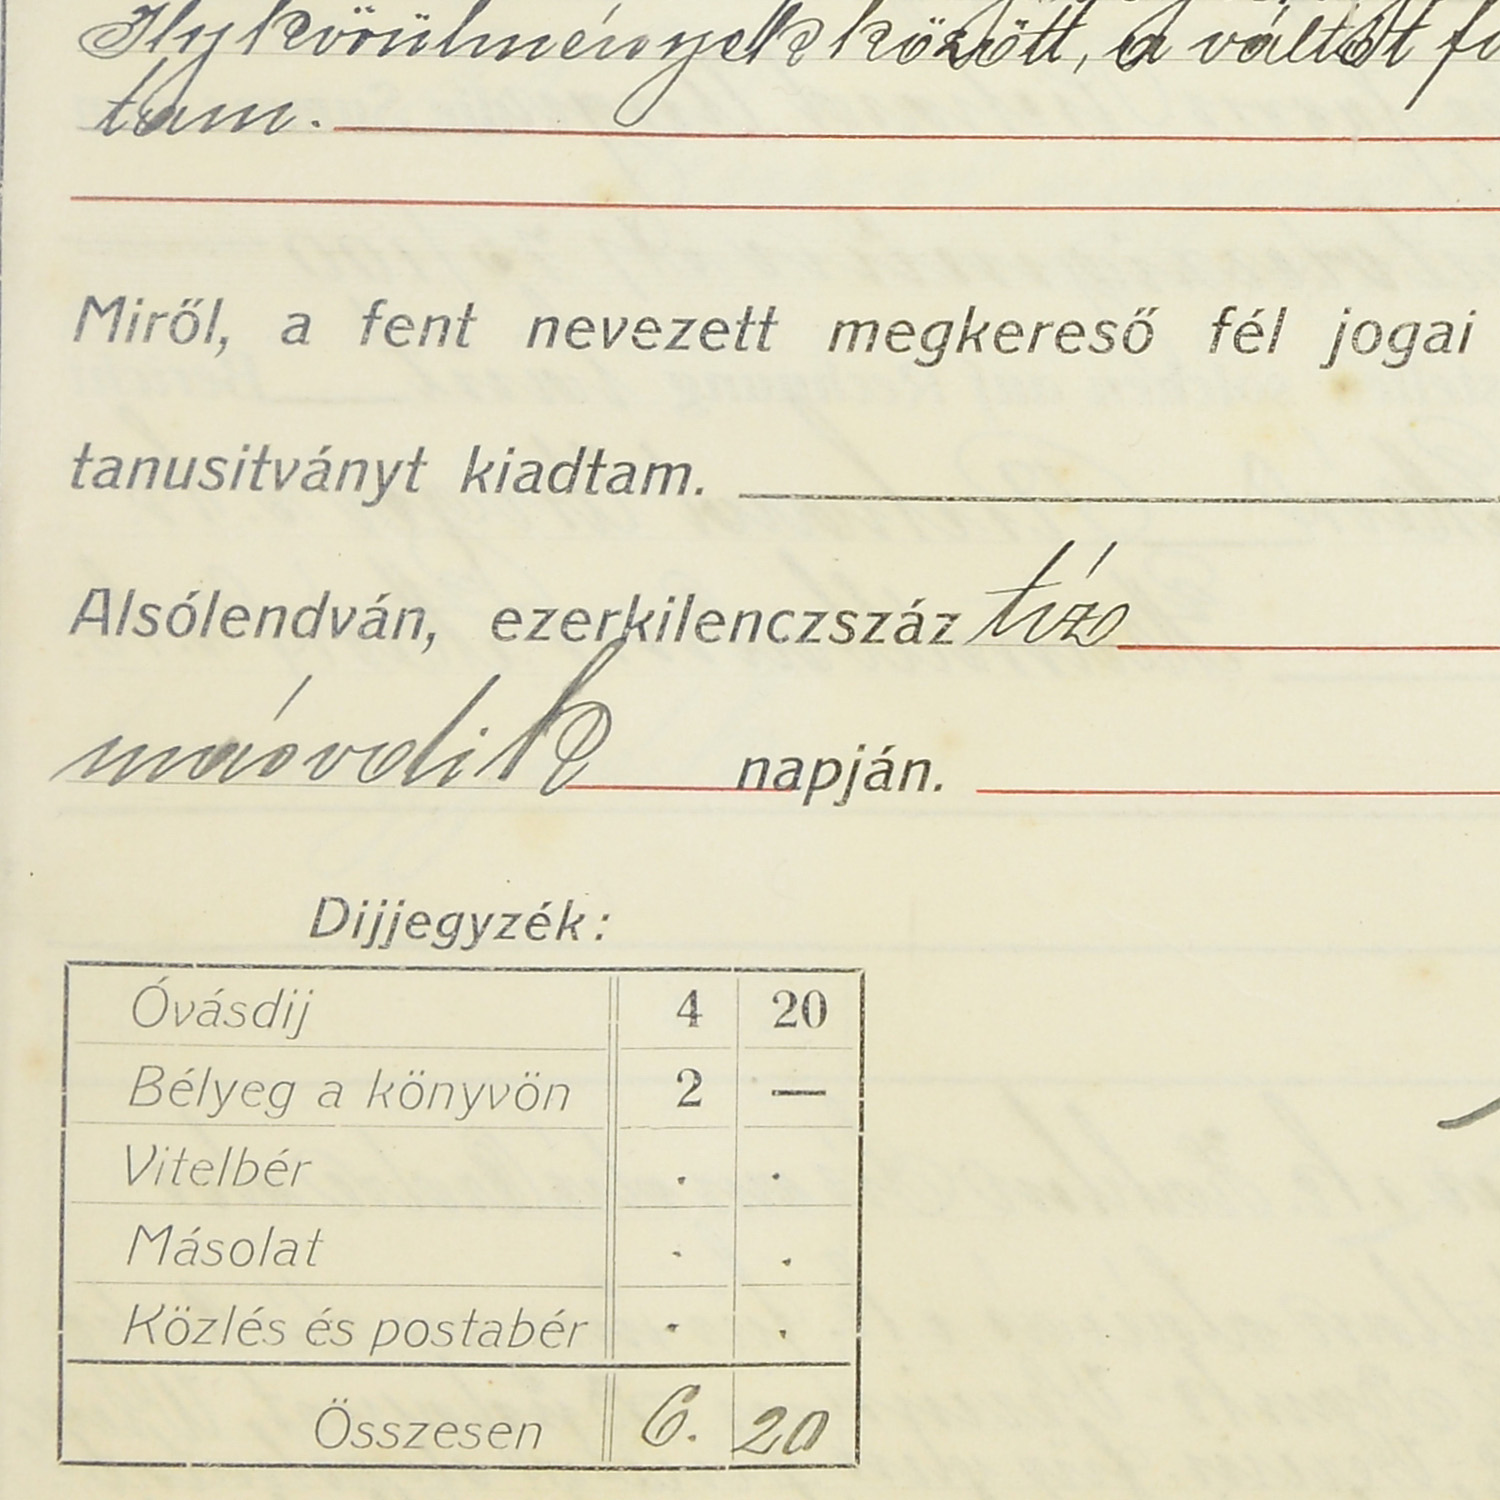 Ily körülmények között, a váltót
tam.
Miről, a fent nevezett megkereső fél jogai
tanusitványt kiadtam.
Alsólendván, ezerkilenczszáz tíz
második napján.
Dijjegyzék:
Óvásdij 4 20
Bélyeg a könyvön 2 —
Vitelbér . .
Másolat . .
Közlés és postabér . .
Összesen 6. 20